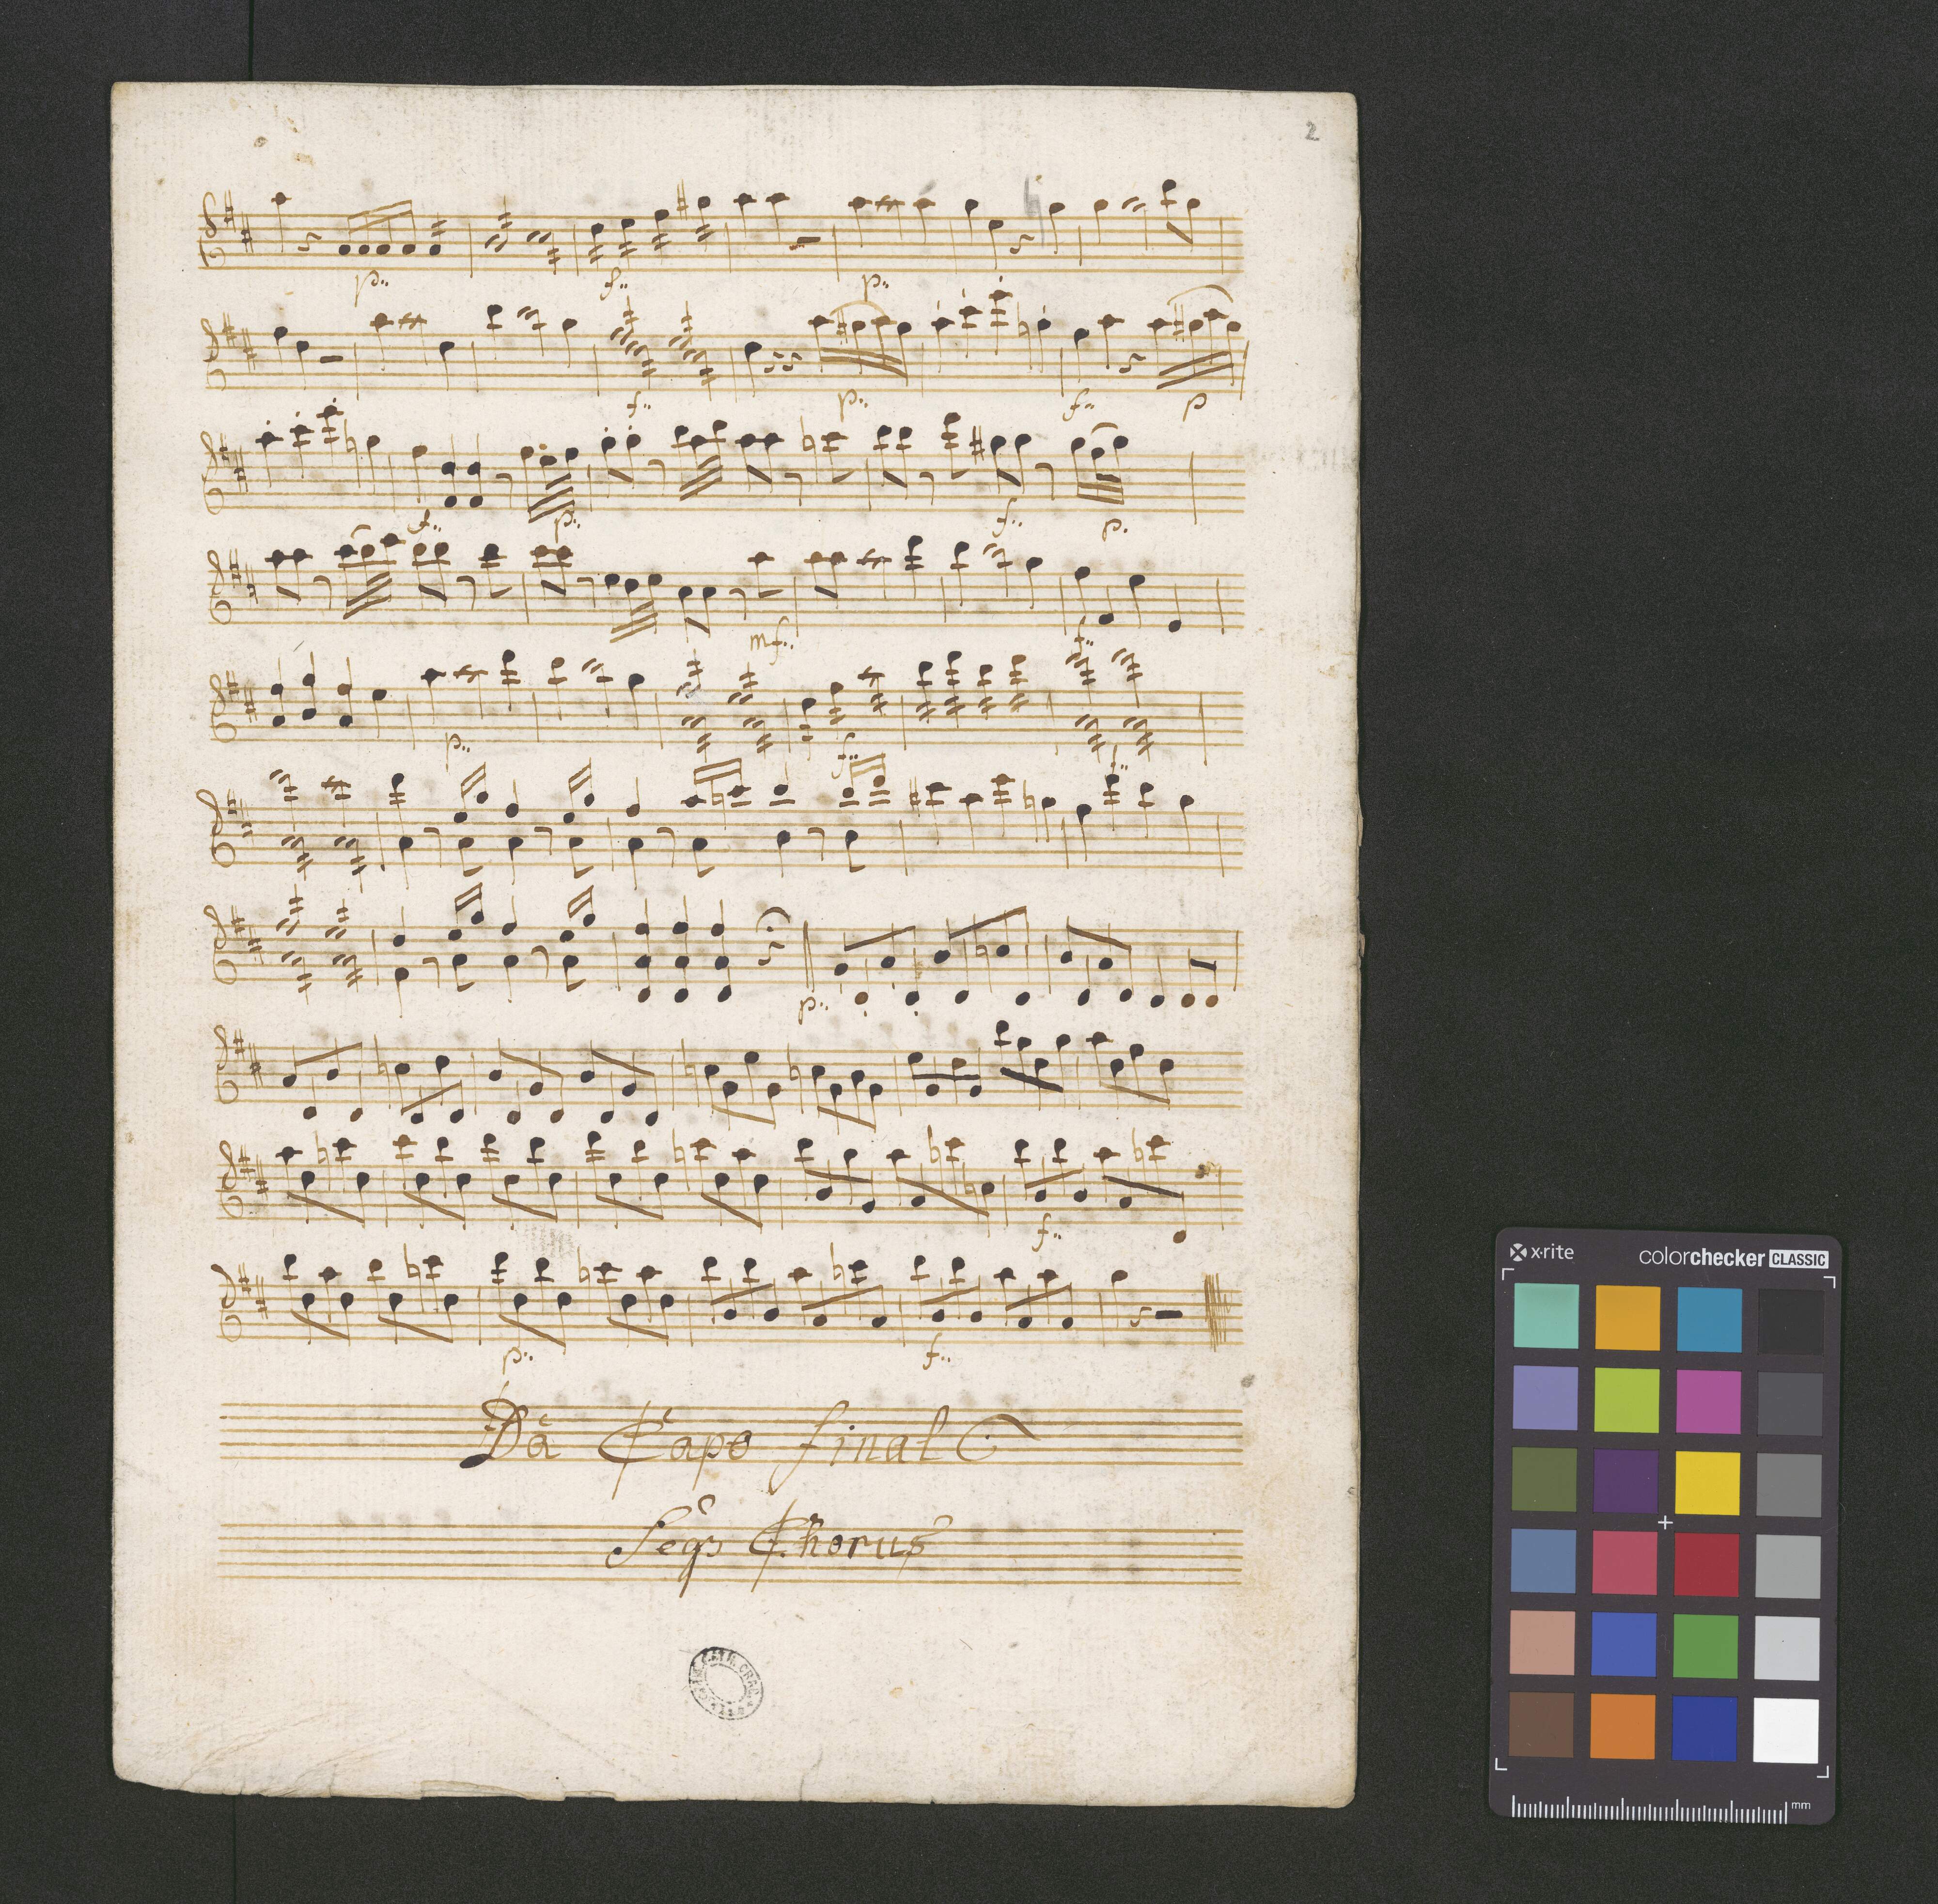 2
p:
f:
p:
f:
p:
f:
p
f:
p:
f:
p.
mf:
f:
p:
f:
f:
p:
f:
p:
f:
Da Capo final
Segs Chorus
x·rite colorchecker CLASSIC
mm